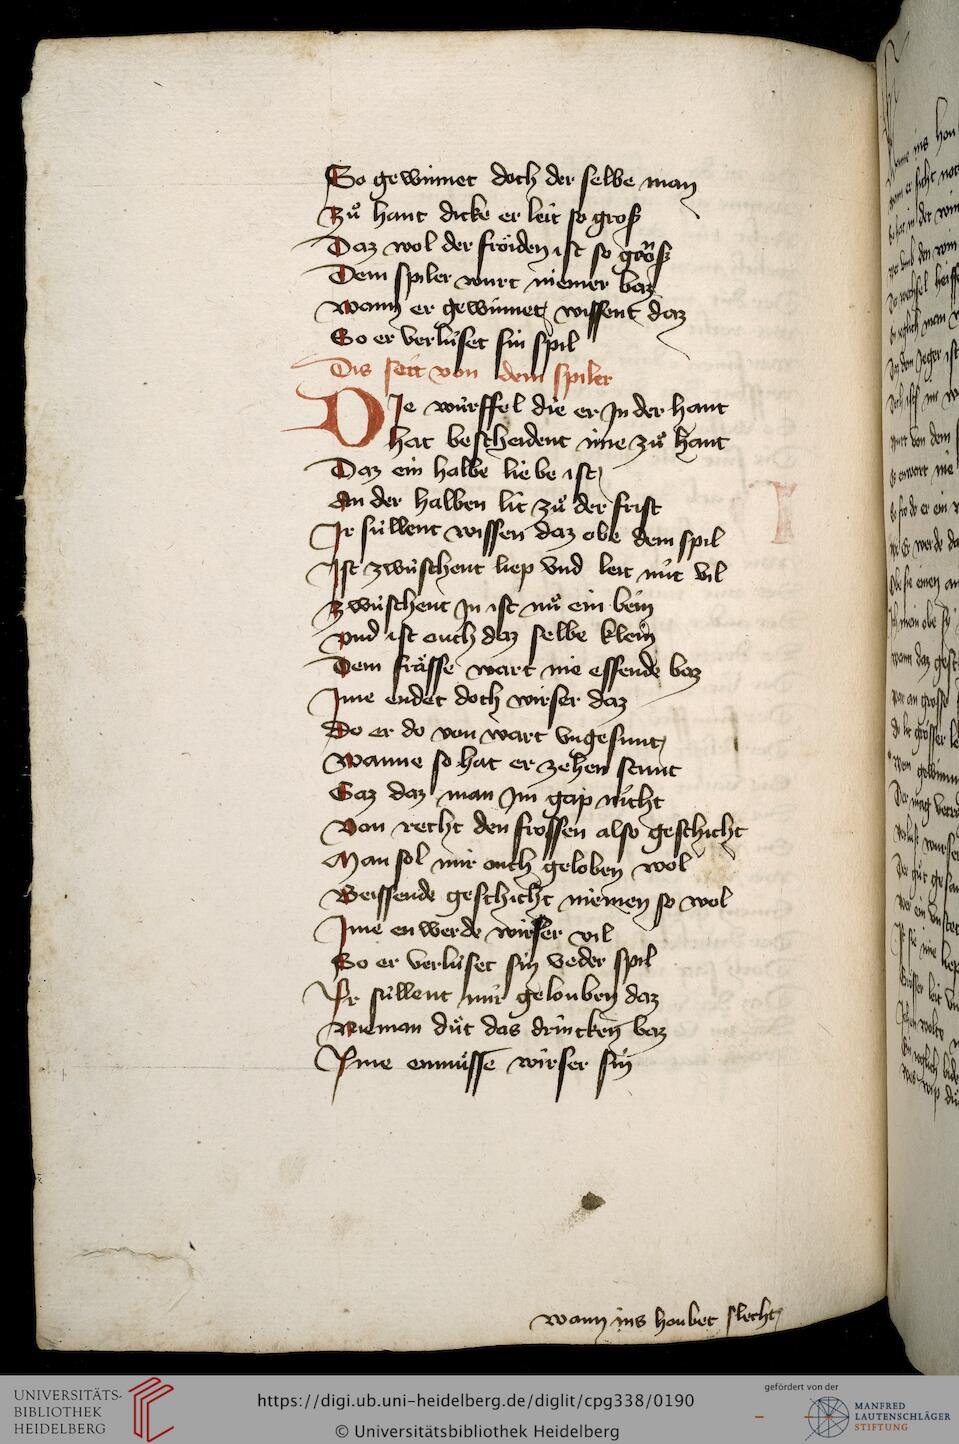 So gewinnet doch der selbe man
Zů hant dicke er leit so groß
Daz wol der fröiden ist so groͤß
Dem spiler wurt niemer baz
wann er gewinnet wissent daz
So er verlúset sin spil
Dis seit von dem spiler
Die würffel die er In der hant
hat bescheident ime zů hant
Daz ein halbe liebe ist
An der halben lit zů der frist
Ir súllent wissen daz obe dem spil
Ist zwúschent liep vnd leit nút vil
Zwúschent In ist nů ein bein
vnd ist ouch daz selbe klein
Dem frässe wart nie essende baz
Ime endet doch wirser daz
Do er do von wart vngesunt
wanne so hat er zehen stunt
Gaz daz man Im gap nicht
Von recht den frossen also geschicht
Man sol mir ouch geloben wol
Beissende geschicht niemen so wol
Ime en werde wirser vil
So er verlúset sin veder spil
Ir súllent mir gelouben daz
Nieman důt das drincken baz
Ime enmüsse wirser sin
wann ins houbet slecht
UNIVERSITÄTS-
BIBLIOTHEK
HEIDELBERG
https://digi.ub.uni-heidelberg.de/diglit/cpg338/0190
© Universitätsbibliothek Heidelberg
gefördert von der
MANFRED
LAUTENSCHLÄGER
STIFTUNG